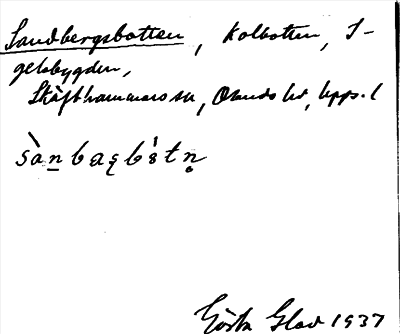 Sandbergsbotten, Kolbotten, I-
gelsbygden,
Skäfthammars sn, Olands hd, Upps. l
sànbaʂbɜ̀tn̥
Gösta Glad 1937